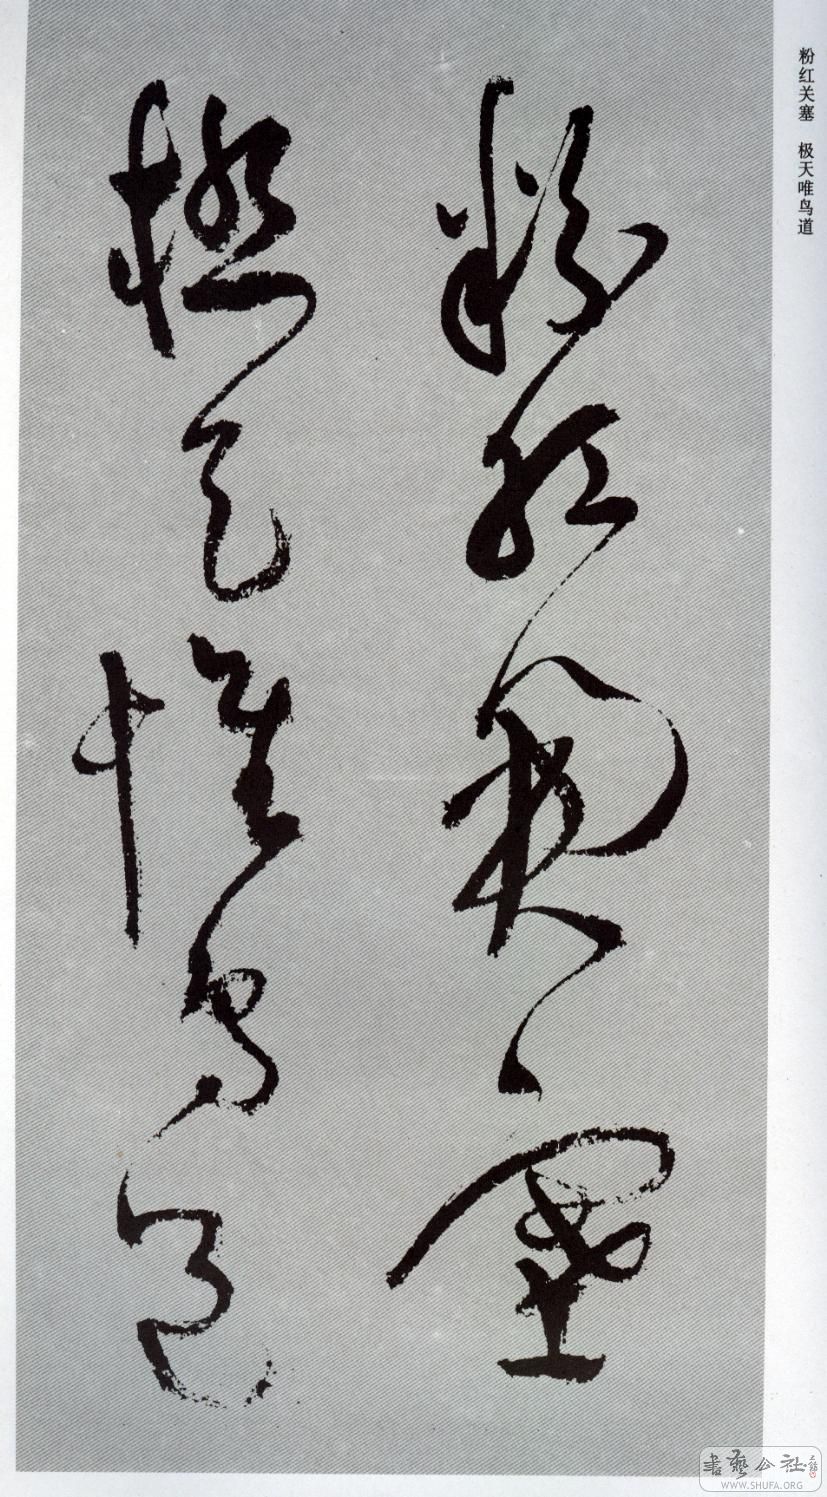 粉红关塞 极天唯鸟道
粉红關塞
極天惟鳥道
書藝公社
WWW.SHUFA.ORG